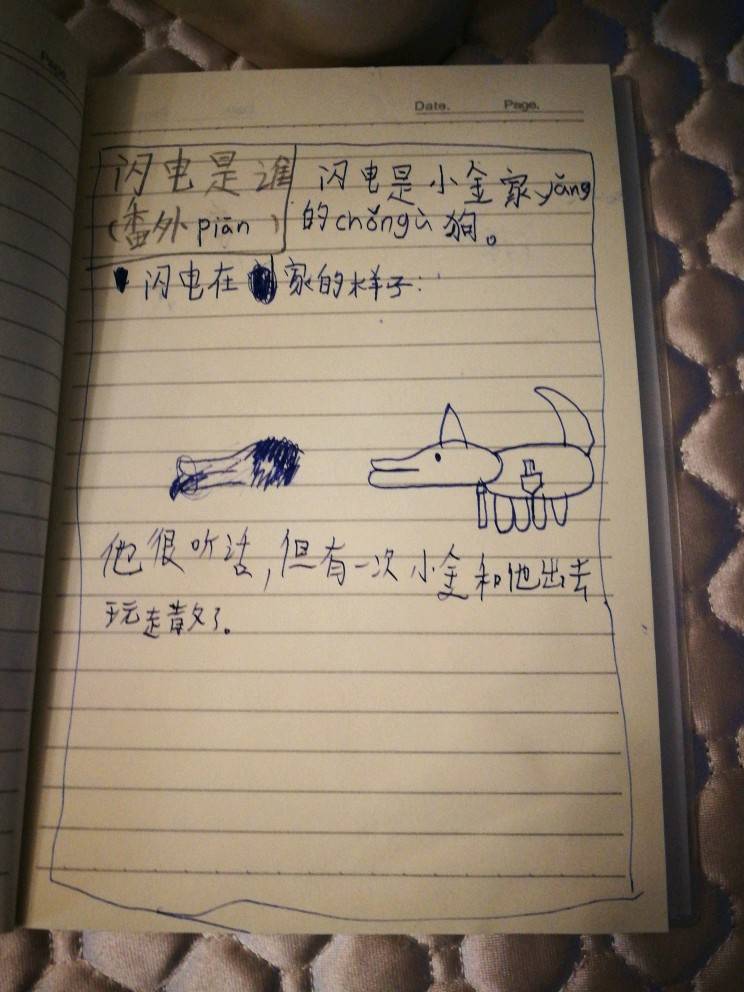 Date. Page.
闪电是谁
(番外piān)
闪电是小金家yǎng
的chǒngù狗。
闪电在家的样子:
他很听话,但有一次小金和他出去
玩走散了。